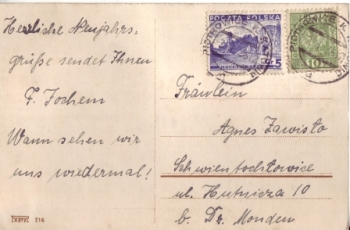 Herzliche Neujahrs-
grüße sendet Ihnen
F. Jochem
Wann sehen wir
uns wiedermal!
POCZTA POLSKA
25
10
Fräulein
Agnes Zawisto
Schwientochlowice
ul. Hutnicza 10
b. Dr. Monden